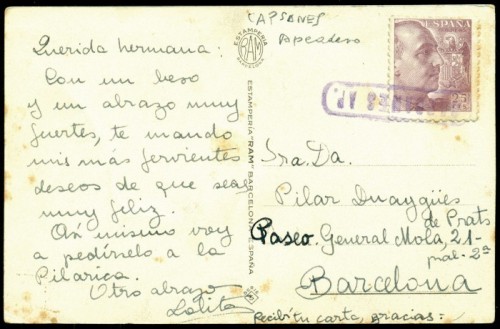 Querida hermana:
Con un beso
y un abrazo muy
fuertes, te mando
mis más fervientes
deseos de que seas
muy feliz.
Así mismo voy
a pedírselo a la
Pilarica.
Otro abrazo
Lolita
ESTAMPERIA
RAM
ESTAMPERIA "RAM" BARCELONA ESPAÑA
CAPSANES
Apeadero
ESPAÑA
Sra. Da.
Pilar Duaygües
de Prats
Paseo General Mola, 21-
pral-2ª
Barcelona
Recibí tu carta, gracias: